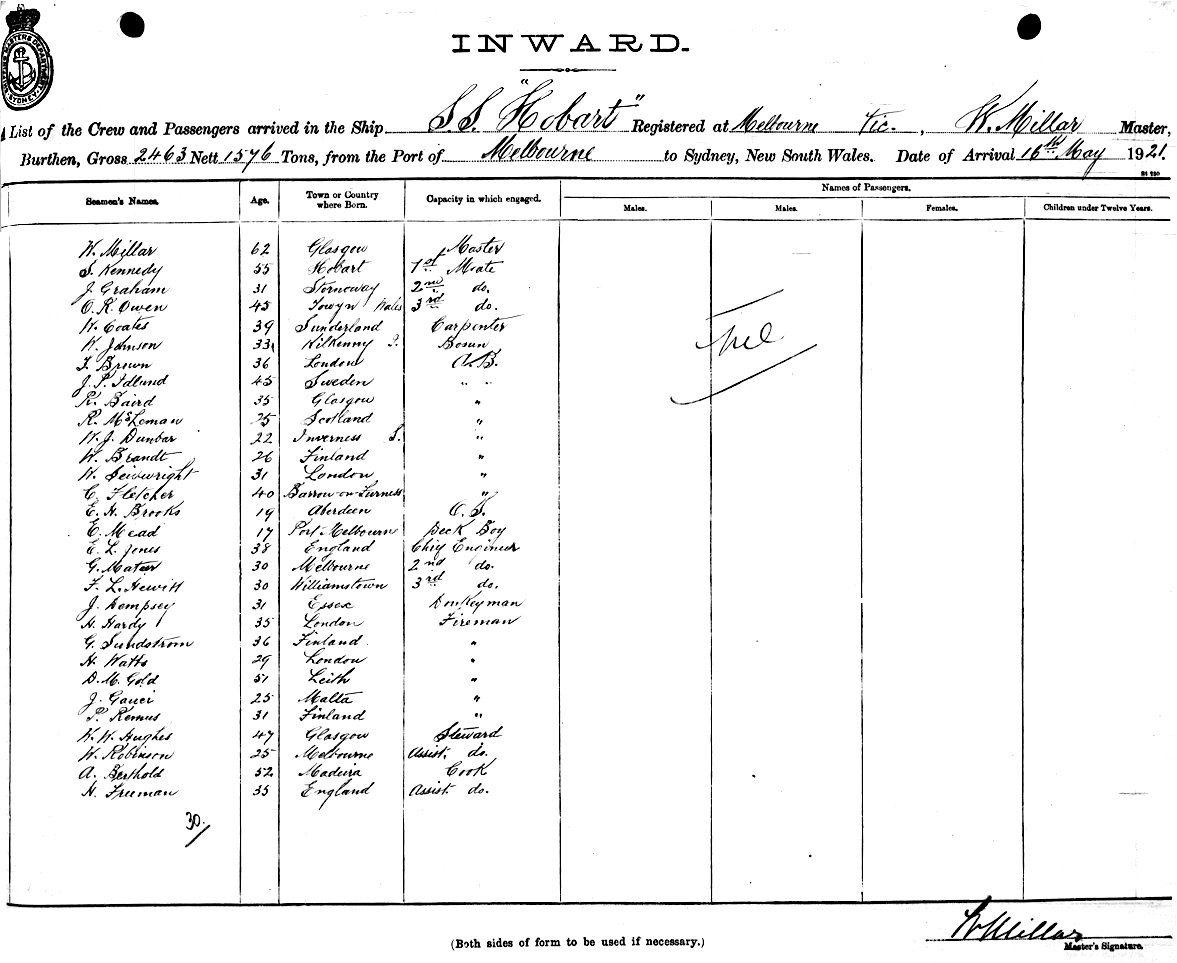 INWARD.
List of the Crew and Passengers arrived in the Ship S.S. "Hobart" Registered at Melbourne Vic., W. Millar Master,
Burthen, Gross 2463 Nett 1576 Tons, from the Port of Melbourne to Sydney, New South Wales. Date of Arrival 16th May 1921.
Names of Passengers.
Seamen's Names. Age. Town or Country where Born. Capacity in which engaged. Males. Males. Females. Children under Twelve Years.
W. Millar 62 Glasgow Master
S. Kennedy 55 Hobart 1st Mate
J. Graham 31 Stornoway 2nd do.
O. R. Owen 45 Towyn Wales 3rd do.
W. Coates 39 Sunderland Carpenter
W. Johnson 33 Kilkenny I. Bosun
F. Brown 36 London A.B.
J. P. Idlund 45 Sweden " "
R. Baird 35 Glasgow "
R. McLeman 25 Scotland "
W. J. Dunbar 22 Inverness S. "
W. Brandt 26 Finland "
W. Seivwright 31 London "
C. Fletcher 40 Barrow-on-Furness "
E. H. Brooks 19 Aberdeen O.S.
E. Mead 17 Port Melbourn Deck Boy
E. L. Jones 38 England Chief Engineer
G. Mateer 30 Melbourne 2nd do.
F. L. Hewitt 30 Williamstown 3rd do.
J. Dempsey 31 Essex Donkeyman
H. Hardy 35 London Fireman
G. Sundstrom 36 Finland "
H. Watts 29 London "
D. M. Gold 51 Leith "
J. Gauci 25 Malta "
P. Remus 31 Finland "
W. W. Hughes 47 Glasgow Steward
W. Robinson 25 Melbourne Assist. do.
A. Berthold 52 Madeira Cook
H. Freeman 35 England Assist. do.
30/
Nil
W Millar
Master's Signature.
(Both sides of form to be used if necessary.)